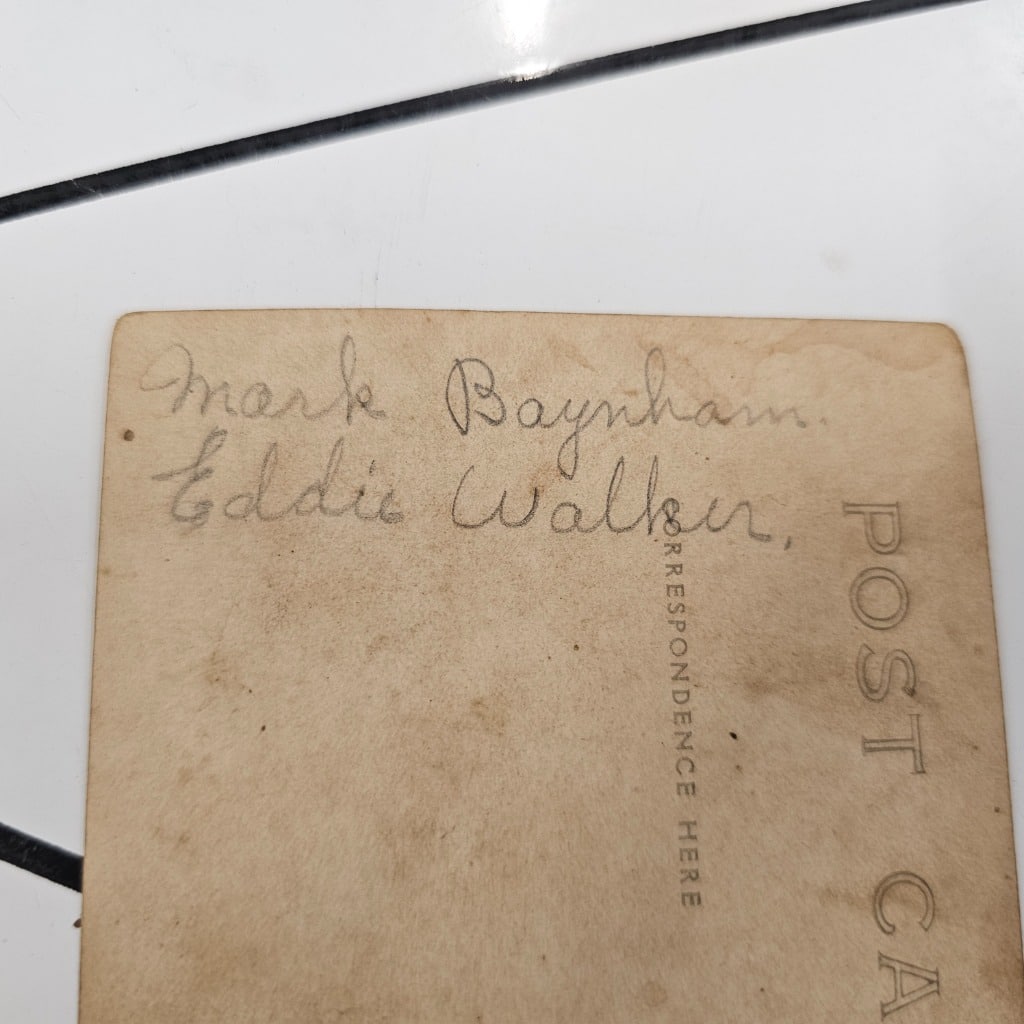 Mark Baynham.
Eddie Walker,
CORRESPONDENCE HERE
POST CA